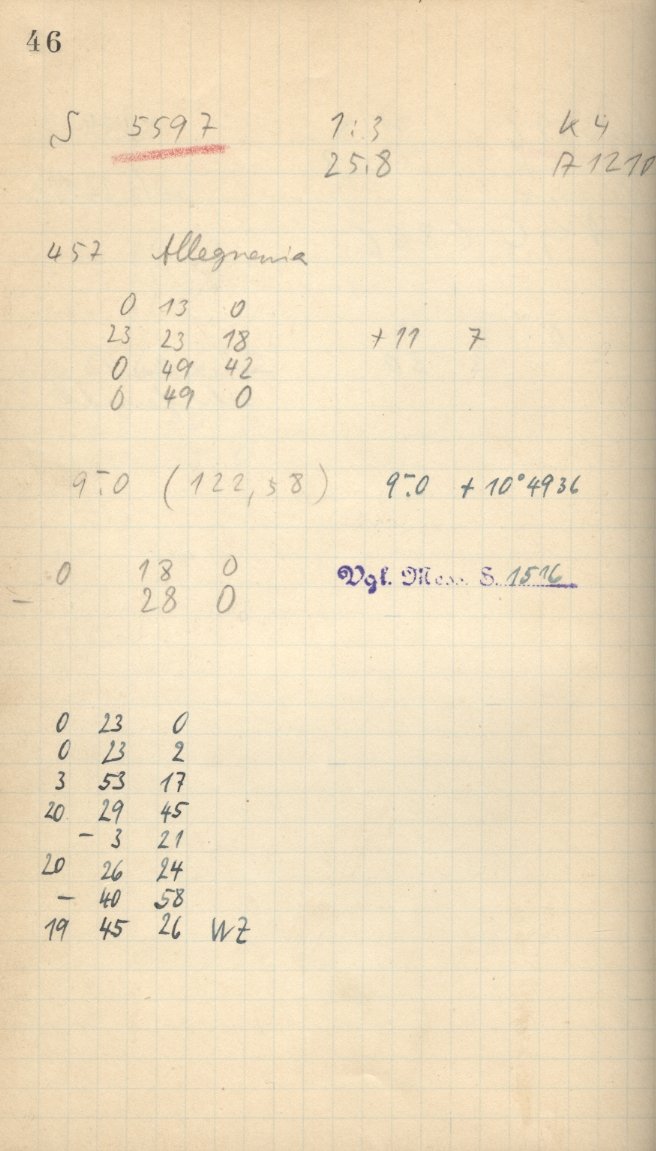 46
S 5597 1:3 K 4
25.8 A 1210
457 Alleghenia
0 13 0
23 23 18 +11 7
0 49 42
0 49 0
9h.0 (122, 58) 9h.0 + 10° 49 36
0 18 0 Vgl. Mess. S. 1516
- 28 0
0 23 0
0 23 2
3 53 17
20 29 45
- 3 21
20 26 24
- 40 58
19 45 26 WZ